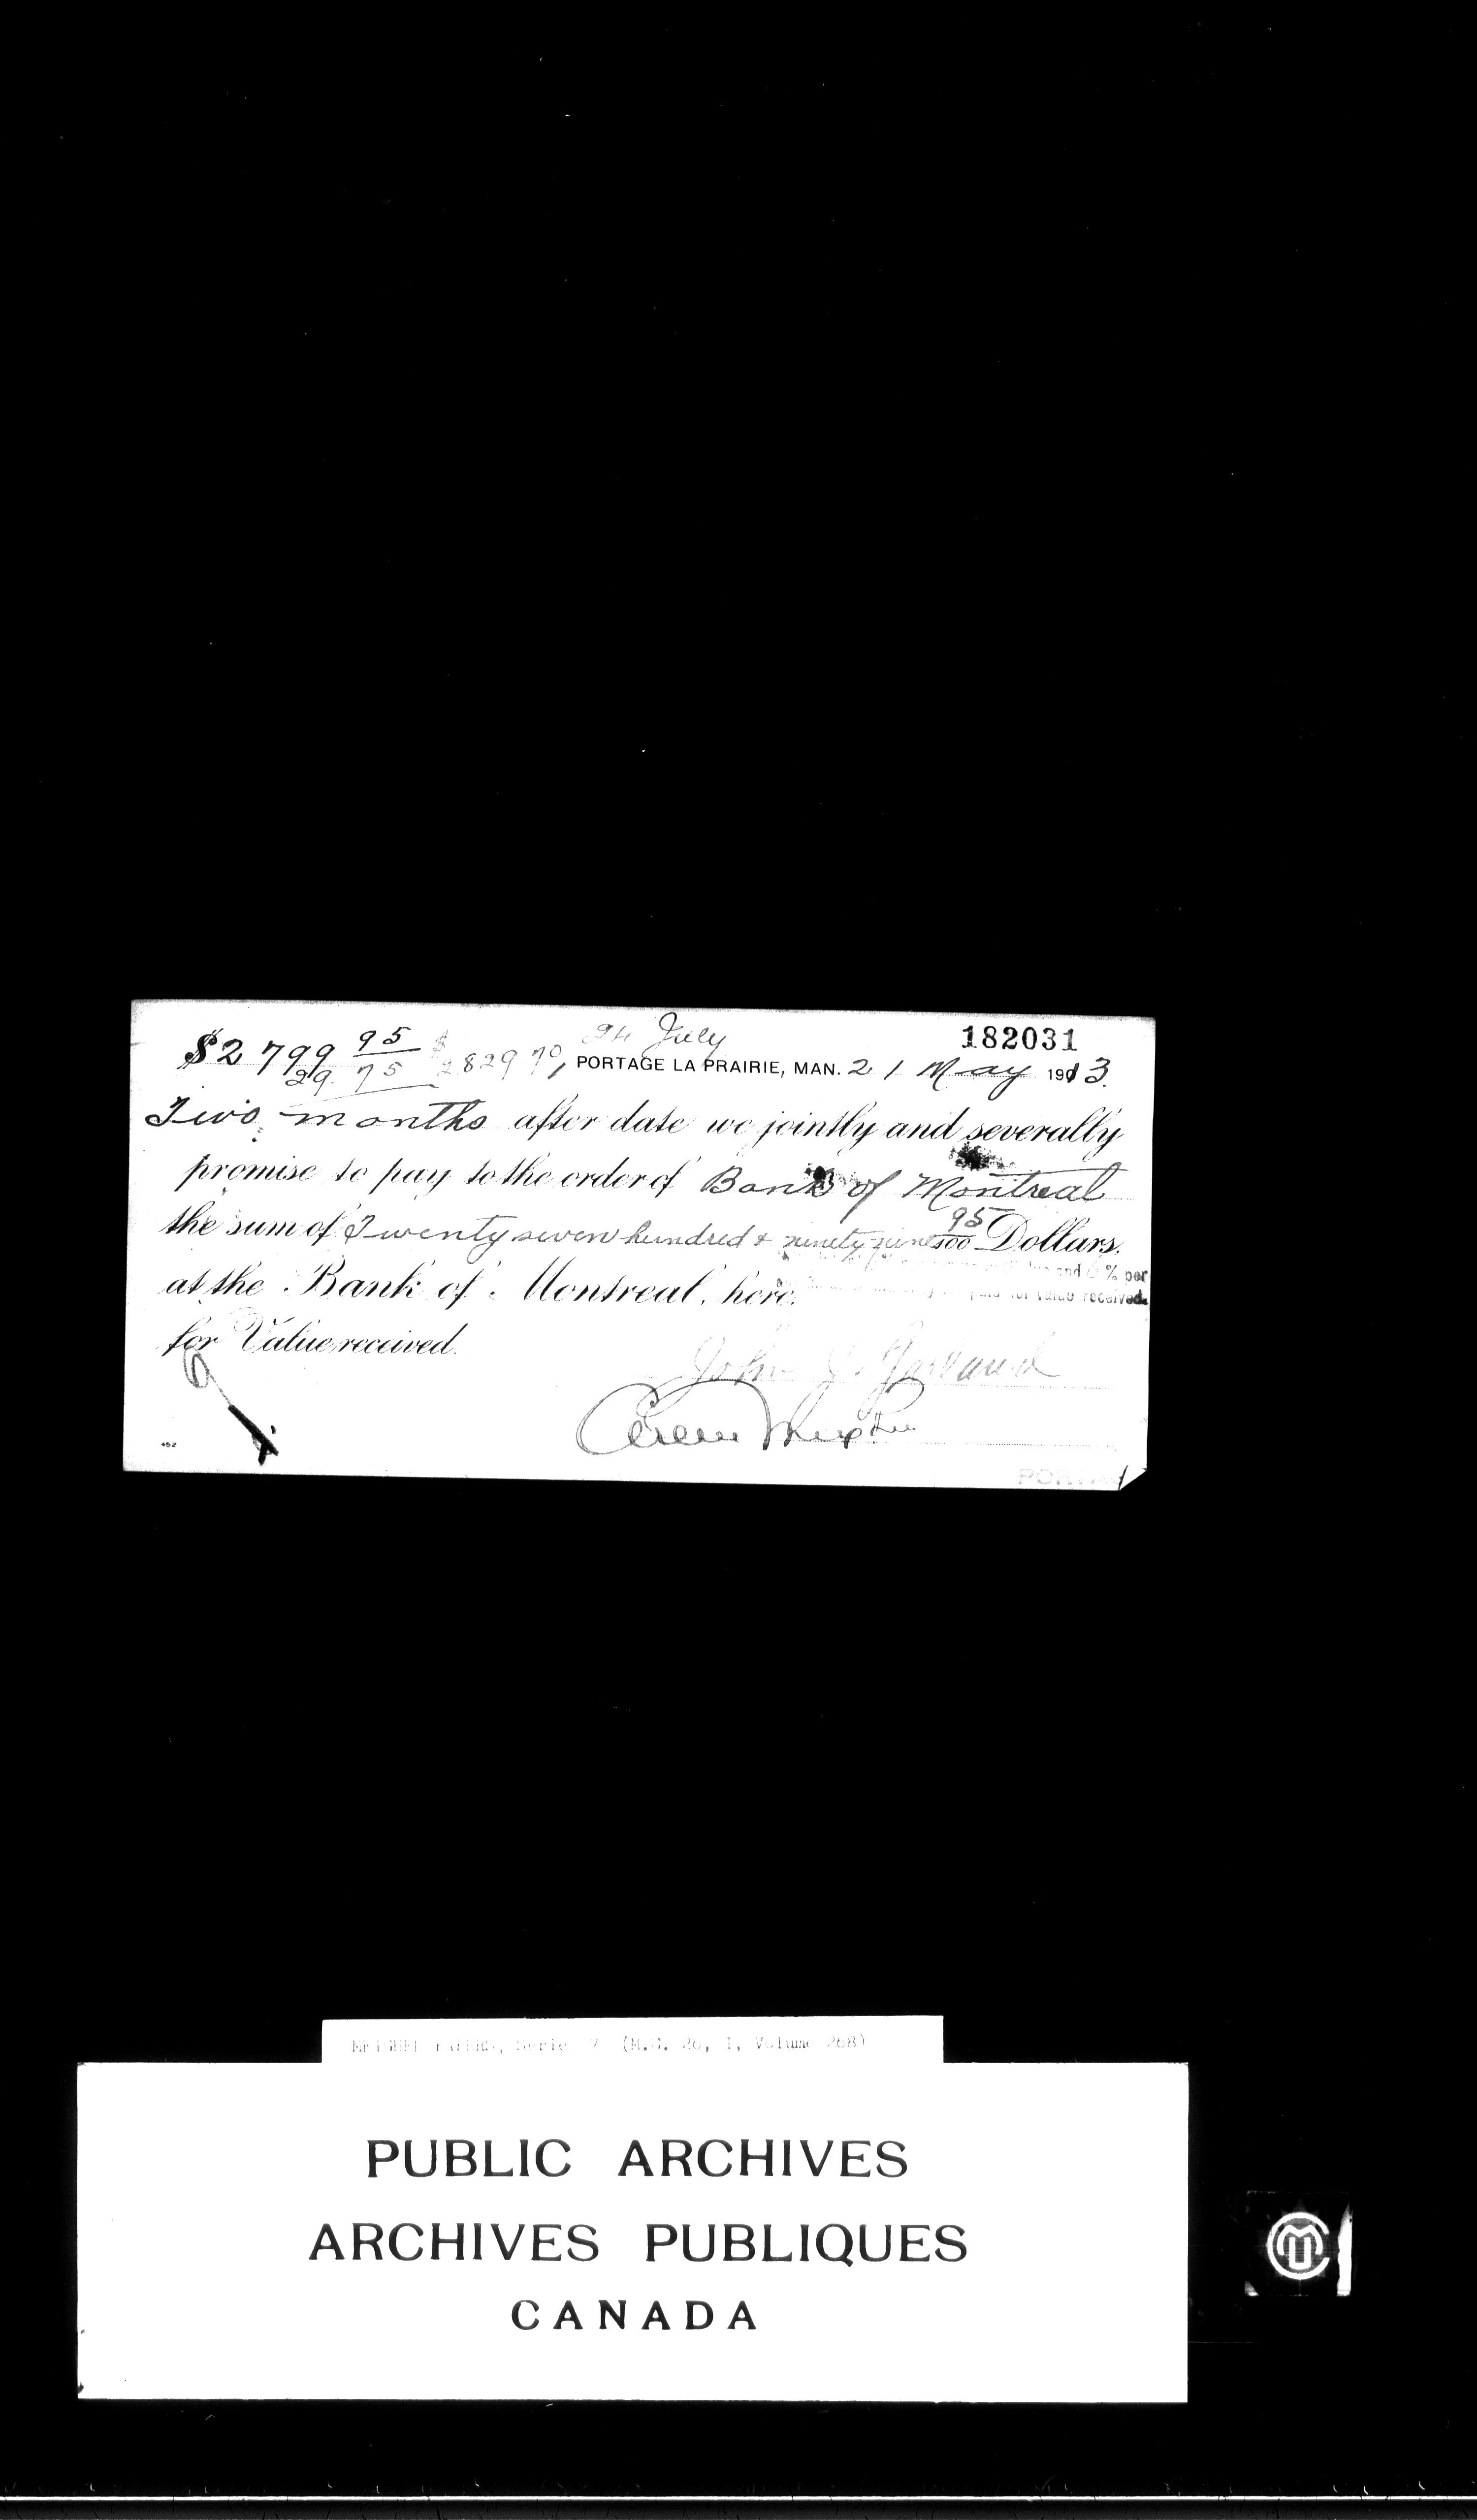 24 July
182031
$2799 95 $2829 70, PORTAGE LA PRAIRIE, MAN. 21 May 1913.
29. 75
Two months after date we jointly and severally
promise to pay to the order of Bank of Montreal
the sum of Twenty seven hundred & ninety nine 95/100 Dollars.
at the Bank of Montreal, here.
and % per
paid for value received.
for Value received.
John J. Garland
452
(M.G. 26, I, Volume 268)
PUBLIC ARCHIVES
ARCHIVES PUBLIQUES
CANADA